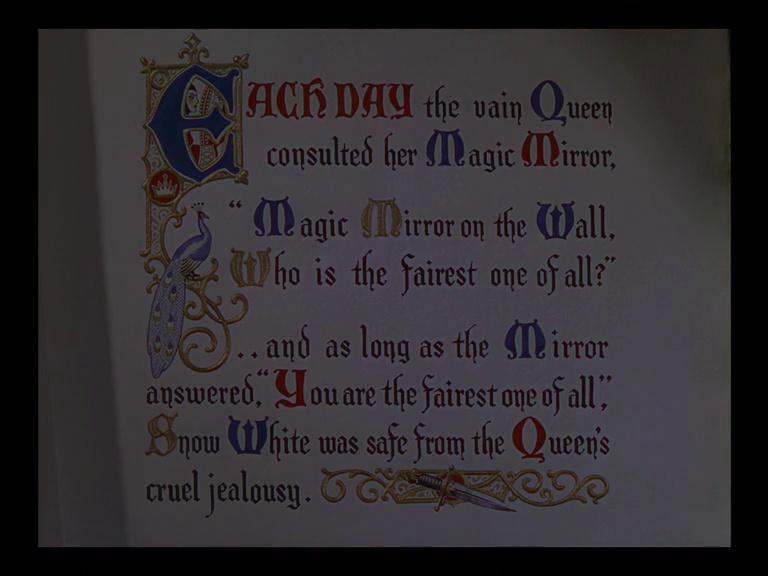 EACH DAY the vain Queen
consulted her Magic Mirror,
“Magic Mirror on the Wall,
Who is the fairest one of all?”
..and as long as the Mirror
answered,“You are the fairest one of all”,
Snow White was safe from the Queen's
cruel jealousy.